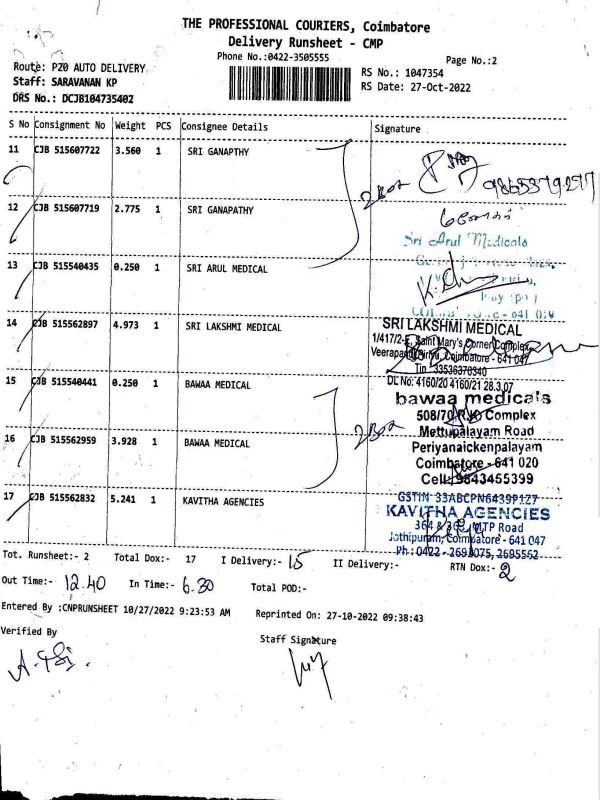 THE PROFESSIONAL COURIERS, Coimbatore
Delivery Runsheet - CMP
Phone No.:0422-3505555
Page No.:2
Route: P20 AUTO DELIVERY
Staff: SARAVANAN KP
DRS No.: DCJB104735402
RS No.: 1047354
RS Date: 27-Oct-2022
S No Consignment No Weight PCS Consignee Details Signature
11 CJB 515607722 3.560 1 SRI GANAPTHY
2 Box
9865379277
12 CJB 515607719 2.775 1 SRI GANAPATHY
Sri Arul Medicals
13 CJB 515540435 0.250 1 SRI ARUL MEDICAL
14 CJB 515562897 4.973 1 SRI LAKSHMI MEDICAL
SRI LAKSHMI MEDICAL
1/417/2-E, Saint Mary's Corner Complex
Veerapandi Pirivu, Coimbatore - 641 047
Tin 33536370340
DL No: 4160/20 4160/21 28.3.07
15 CJB 515540441 0.250 1 BAWAA MEDICAL
2 Box
bawaa medicals
508/70 Complex
Mettupalayam Road
Periyanaickenpalayam
Coimbatore - 641 020
Cell: 9843455399
16 CJB 515562959 3.928 1 BAWAA MEDICAL
17 CJB 515562832 5.241 1 KAVITHA AGENCIES
GSTIN 33ABCPN6439P1Z7
KAVITHA AGENCIES
MTP Road
Jothipuram, Coimbatore - 641 047
Ph : 0422 - 2693075, 2695562
Tot. Runsheet:- 2 Total Dox:- 17 I Delivery:- 15 II Delivery:- RTN Dox:- 2
Out Time:- 12.40 In Time:- 6.30 Total POD:-
Entered By :CNPRUNSHEET 10/27/2022 9:23:53 AM Reprinted On: 27-10-2022 09:38:43
Verified By
Staff Signature